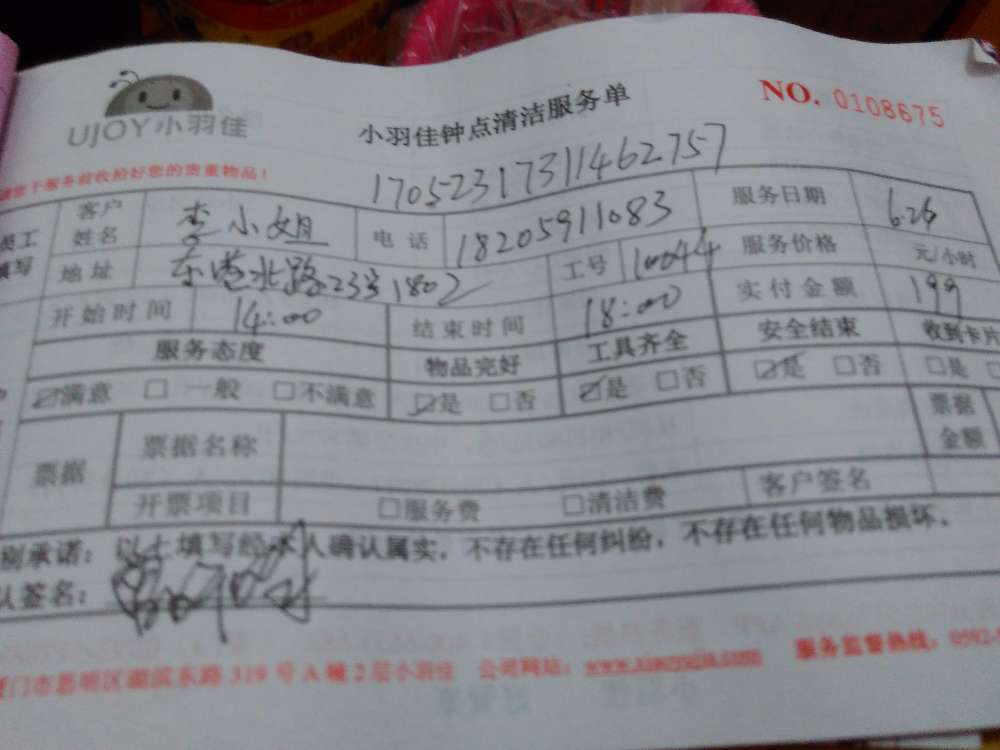 UJOY小羽佳
小羽佳钟点清洁服务单
NO. 0108675
请您于服务前收拾好您的贵重物品！
17052317311462757
员工填写
客户姓名 李小姐 电话 18205911083 服务日期 6.26
地址 东港北路233 1802 工号 10044 服务价格 元/小时
开始时间 14:00 结束时间 18:00 实付金额 199
服务态度 物品完好 工具齐全 安全结束 收到卡片
☑满意 □一般 □不满意 ☑是 □否 ☑是 □否 ☑是 □否 □是 □
票据 票据名称 票据金额
开票项目 □服务费 □清洁费 客户签名
别承诺：以上填写经本人确认属实，不存在任何纠纷，不存在任何物品损坏。
认签名：
门市思明区湖滨东路319号A幢2层小羽佳 公司网站：www.xiaoyujia.com 服务监督热线：0592-